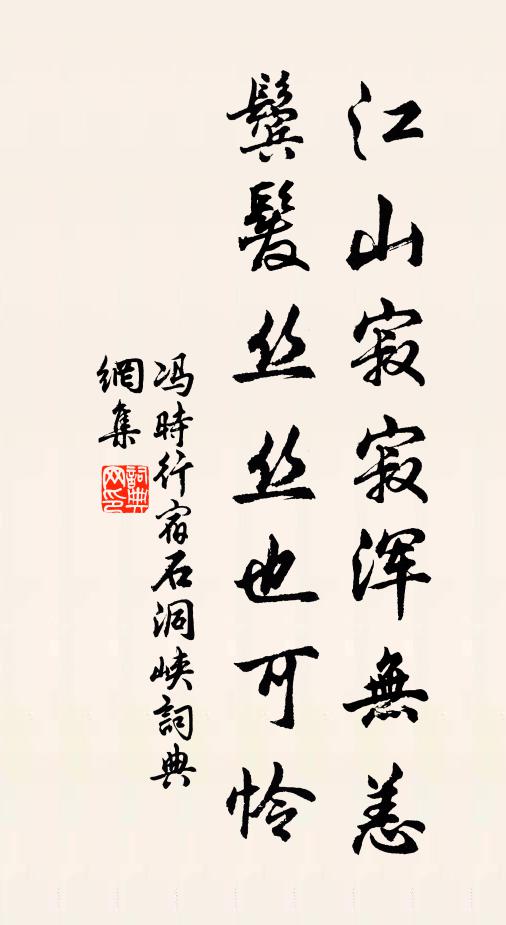 江山寂寂浑無恙
鬢髮丝丝也可怜
冯時行宿石洞峡詞典
網集
詞典网印